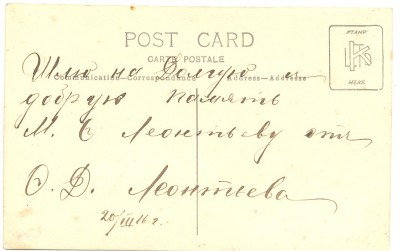 POST CARD
CARTE POSTALE
STAMP
HERE
Шлю на Долгую и
Communication—Correspondence Address—Adresse
добрую память
М. С. Леонтьеву отъ
О. Д. Леонтиева
20/III 16 г.